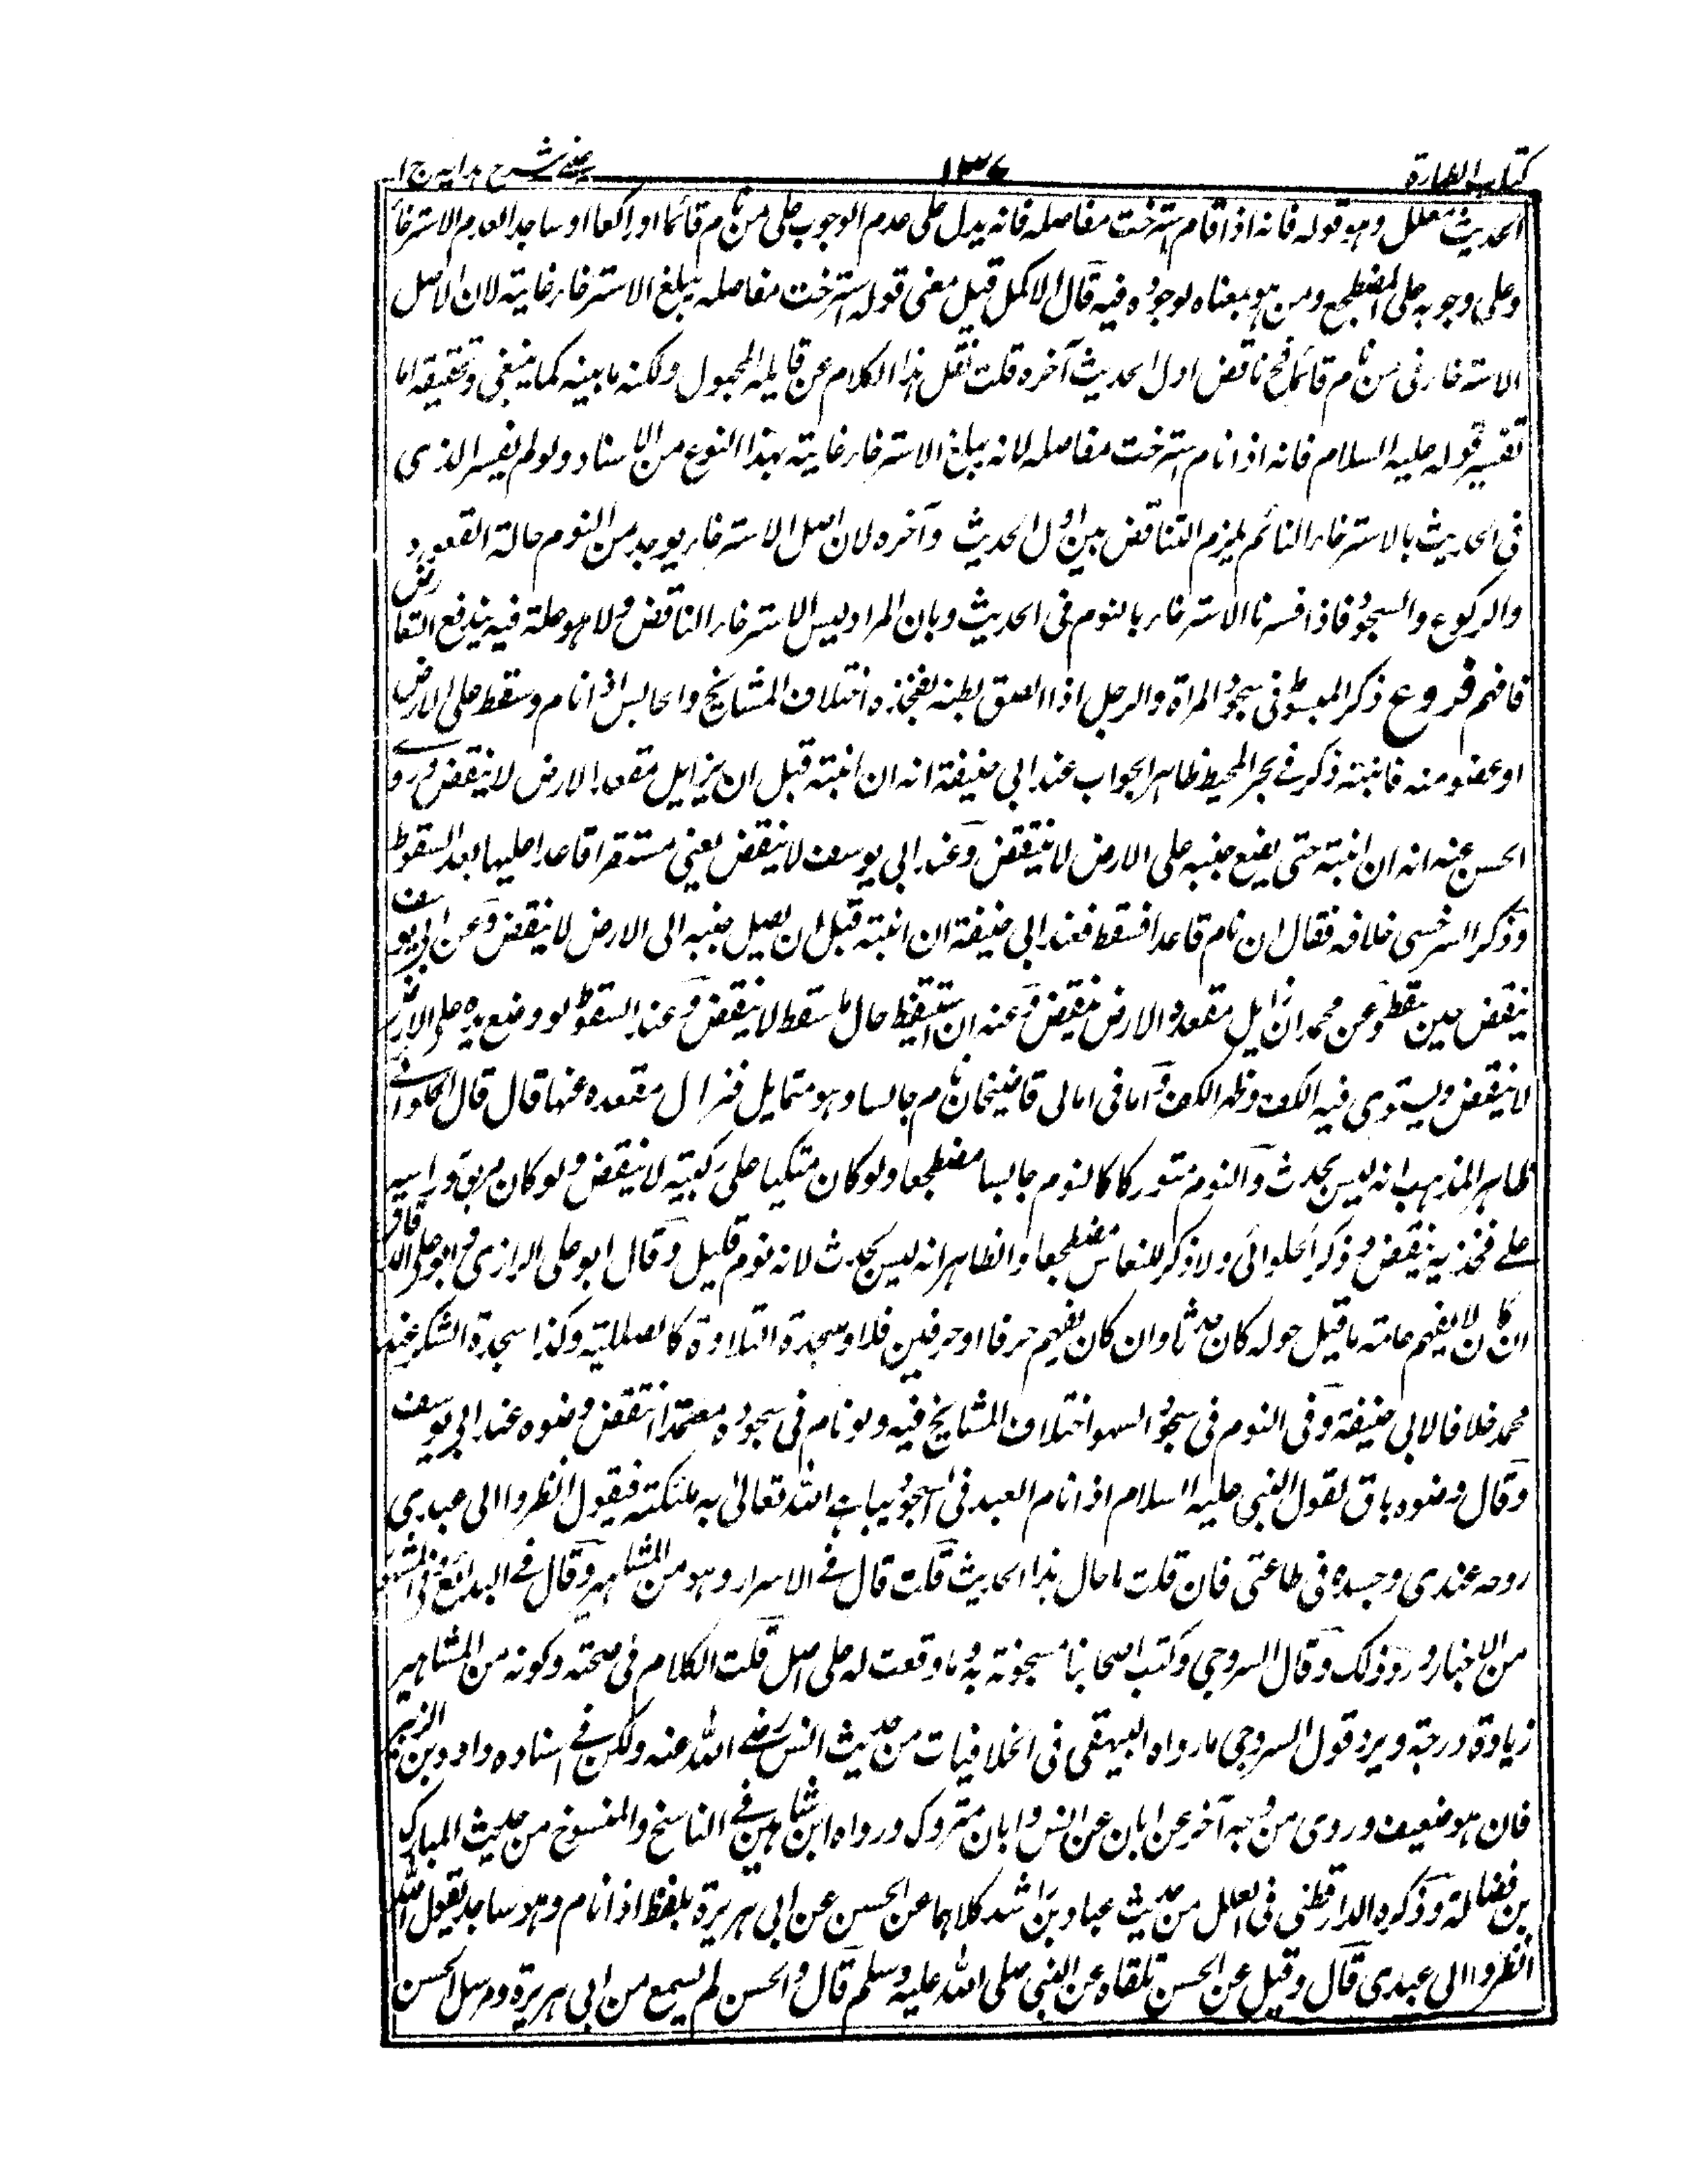 كتاب الطهارة
١٣٧
عينى شرح هدايه ج ١
الحديث معلل وهو قوله فانه اذا قام استرخت مفاصله فانه يدل على عدم الوجوب على من نام قائما او راكعا او ساجدا لعدم الاسترخاء
وعلى وجوبه على المضطجع ومن هو بمعناه لوجوده فيه قال الاكمل قيل معنى قوله استرخت مفاصله يبلغ الاسترخاء غايته لان لاصل
الاسترخاء فى من نام قائما فح ناقض اول الحديث آخره قلت نقل هذا الكلام عن قايله المجهول ولكنه ما بينه كما ينبغى وتحقيقه اما
تفسير قوله عليه السلام فانه اذا نام استرخت مفاصله لانه يبلغ الاسترخاء غايته بهذا النوع من الاسناد ولو لم يفسر الذى
فى الحديث بالاسترخاء النائم يلزم التناقض بين اول الحديث وآخره لان اصل الاسترخاء يوجد من النوم حالة القعود
والركوع والسجود فاذا فسرنا الاسترخاء بالنوم فى الحديث وبان المراد ليس الاسترخاء الناقض ولا هو علة فيه يندفع التعارض
فافهم فروع ذكر المبسوط فى سجود المراة والرجل اذا الصق بطنه بفخذه اختلاف المشايخ والجالس اذا نام وسقط على الارض
او عضو منه فانتبه ذكر فى بحر المحيط ظاهر الجواب عند ابى حنيفة انه ان انتبه قبل ان يزايل مقعده الارض لا ينقض وروى
الحسن عنه انه ان انتبه حتى يضع جنبه على الارض لا ينتقض وعند ابى يوسف لا ينقض يعنى مستقرا قاعدا عليها بعد السقوط
وذكر السرخسى خلافه فقال ان نام قاعدا فسقط فعند ابى حنيفة ان انتبه قبل ان يصل جنبه الى الارض لا ينقض وعن ابى يوسف
ينقض حين سقط وعن محمد ان زايل مقعده الارض ينقض وعنه ان استيقظ حال ما سقط لا ينقض وعند السقوط لو وضع يده على الارض
لا ينقض ويستوى فيه الكف وظهر الكف واما فى امالى قاضيخان نام جالسا وهو متمايل فزال مقعده عنها قال قال الحلوانى
ظاهر المذهب انه ليس بحدث والنوم متوركا كالنوم جالسا مضطجعا ولو كان متكيا على ركبتيه لا ينقض ولو كان راسه
على فخذيه ينقض وذكر الحلوانى ولا ذكر للنعاس مضطجعا والظاهر انه ليس بحدث لانه نوم قليل وقال ابو على الرازى وابو على الدقاق
ان كان لا يفهم عامة ما قيل حوله كان حدثا وان كان يفهم حرفا او حرفين فلا وسجدة التلاوة كالصلاتية وكذا سجدة الشكر عند
محمد خلافا لابى حنيفة وفى النوم فى سجود السهو اختلاف المشايخ فيه ولو نام فى سجوده معتمدا انتقض وضوه عند ابى يوسف
وقال وضوه باق لقول النبى عليه السلام اذا نام العبد فى السجود يباهى الله تعالى به ملئكته فيقول انظروا الى عبدى
روحه عندى وجسده فى طاعتى فان قلت ما حال هذا الحديث قلت قال فى الاسرار وهو من المشاهير وقال فى البدائع فى المشهور
من الاخبار ورد ذلك وقال السروجى وكتب اصحابنا مشحونة به وما وقعت له على اصل قلت الكلام فى صحته وكونه من المشاهير
زيادة درجة ويرد قول السروجى ما رواه البيهقى فى الخلافيات من حديث انس رضى الله عنه ولكن فى اسناده داود بن الزبرقان
فان هو ضعيف وروى من وجه آخر عن ابان عن انس وابان متروك ورواه ابن شاهين فى الناسخ والمنسوخ من حديث المبارك
بن فضالة وذكره الدارقطنى فى العلل من حديث عباد بن راشد كلاهما عن الحسن عن ابى هريرة بلفظ اذا نام وهو ساجد يقول الله
انظروا الى عبدى قال وقيل عن الحسن تلقاه عن النبى صلى الله عليه وسلم قال والحسن لم يسمع من ابى هريرة ومرسل الحسن